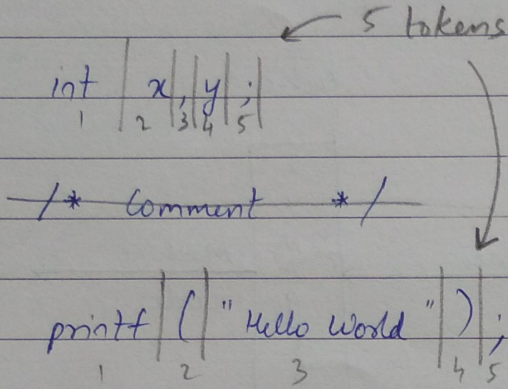 5 tokens
int | x | , | y | ; |
1 2 3 4 5
/* Comment */
printf | ( | "Hello World" | ) | ;
1 2 3 4 5